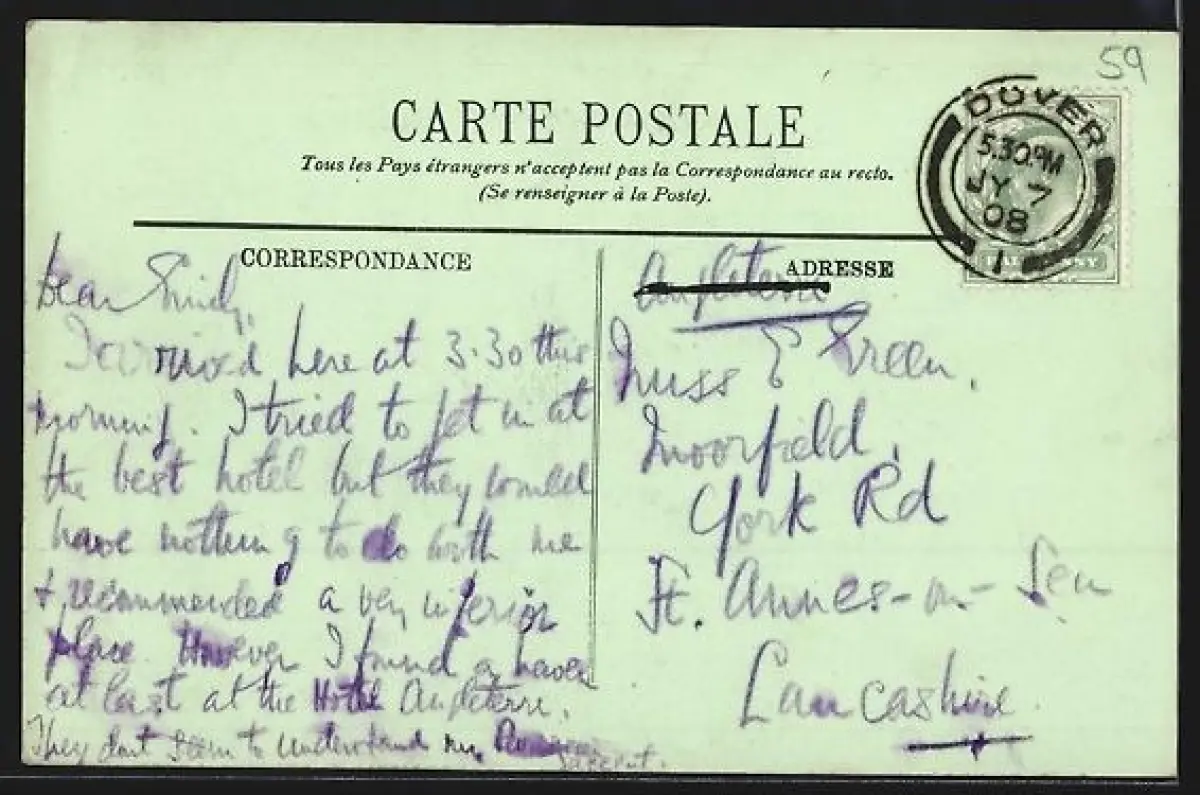 59
CARTE POSTALE
Tous les Pays étrangers n'acceptent pas la Correspondance au recto.
(Se renseigner à la Poste).
DOVER
5.30PM
JY 7
08
1
HALFPENNY
CORRESPONDANCE
Dear Emily,
I arrived here at 3.30 this
morning. I tried to get in at
the best hotel but they would
have nothing to do with me
& recommended a very inferior
place. However I found a haven
at last at the Hotel Angleterre.
They dont seem to understand my
accent.
ADRESSE
Angleterre
Miss E Green,
Moorfield,
York Rd
St. Annes-on-Sea
Lancashire